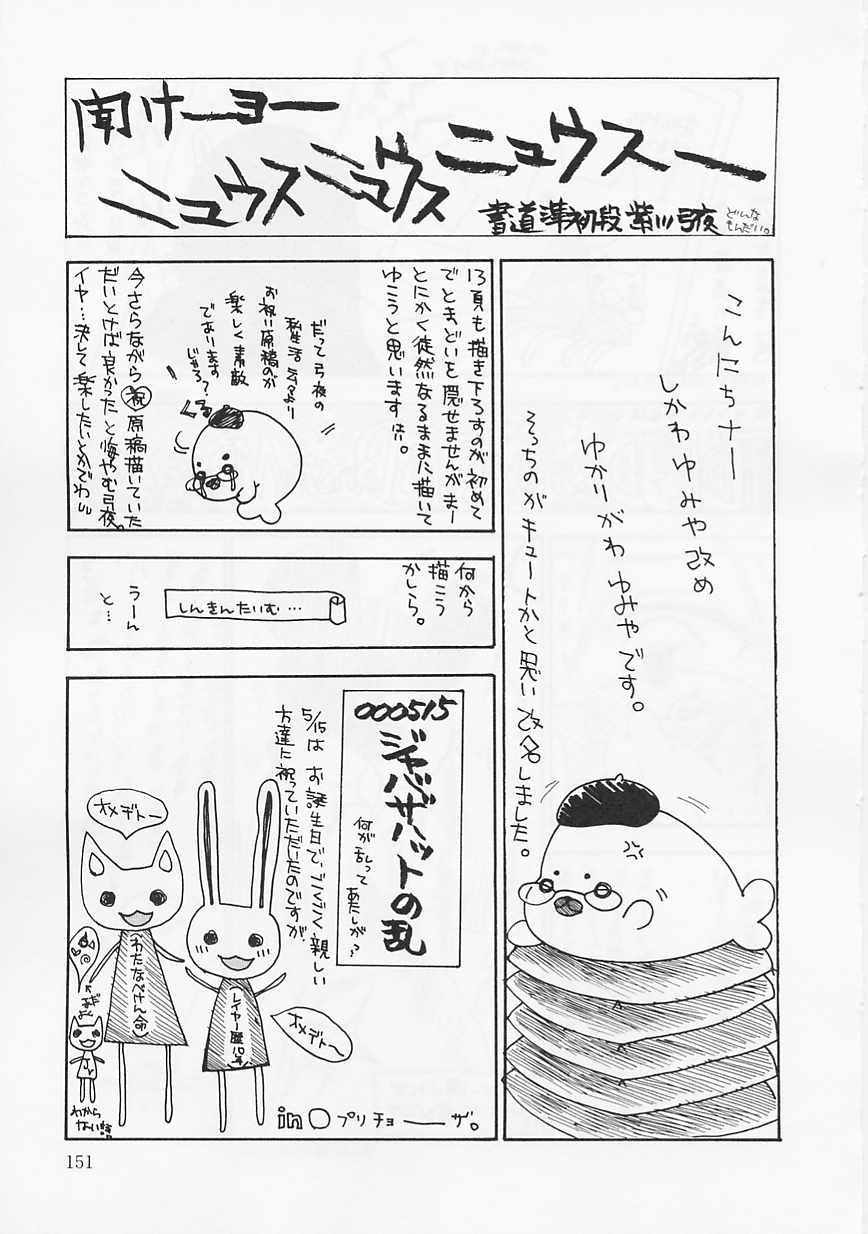 聞けーヨー
ニュウスニュウスニュウスー
書道準初段 紫川弓夜
どんな
もんだい。
こんにちナー
しかわゆみや改め
ゆかりがわ ゆみやです。
そっちのがキュートかと思い改名しました。
13頁も描き下ろすのが初めて
でとまどいを隠せませんがまー
とにかく徒然なるままに描いて
ゆこうと思います
だって弓夜の
私生活
お祝い原稿のが
楽しく素敵
であります
じゃろ?
今さらながら祝原稿描いていた
だいとけば良かったと悔やむ弓夜。
イヤ…決して楽したいとかでわ
何から
描こう
かしら。
しんきんたいむ…
うーん
と…
000515
ジャバザハットの乱
何が乱って
あたしが?
5/15は お誕生日で、ごくごく親しい
方達に祝っていただいたのですが
オメデトー
わたなべけん(命)
レイヤー歴10年
オメデトー
わから
ない話
in○プリチョーザ。
151